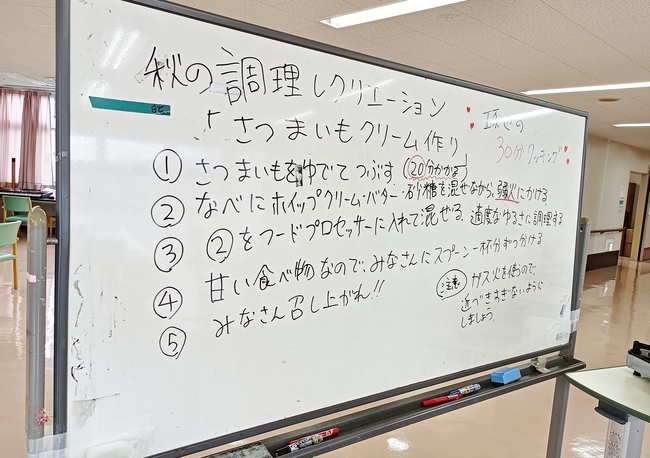 秋の調理レクリエーション
「さつまいもクリーム作り
の
30分クッキング
① さつまいもをゆでてつぶす (20分かかる)
② なべにホイップクリーム・バター・砂糖を混ぜながら、弱火にかける
③ ②をフードプロセッサーに入れて混ぜる。適度なゆるさに調理する
④ 甘い食べ物なので、みなさんにスプーン一杯分ずつ分ける
⑤ みなさん召し上がれ!!
注意 ガス火を使うので、
近づきすぎないように
しましょう。